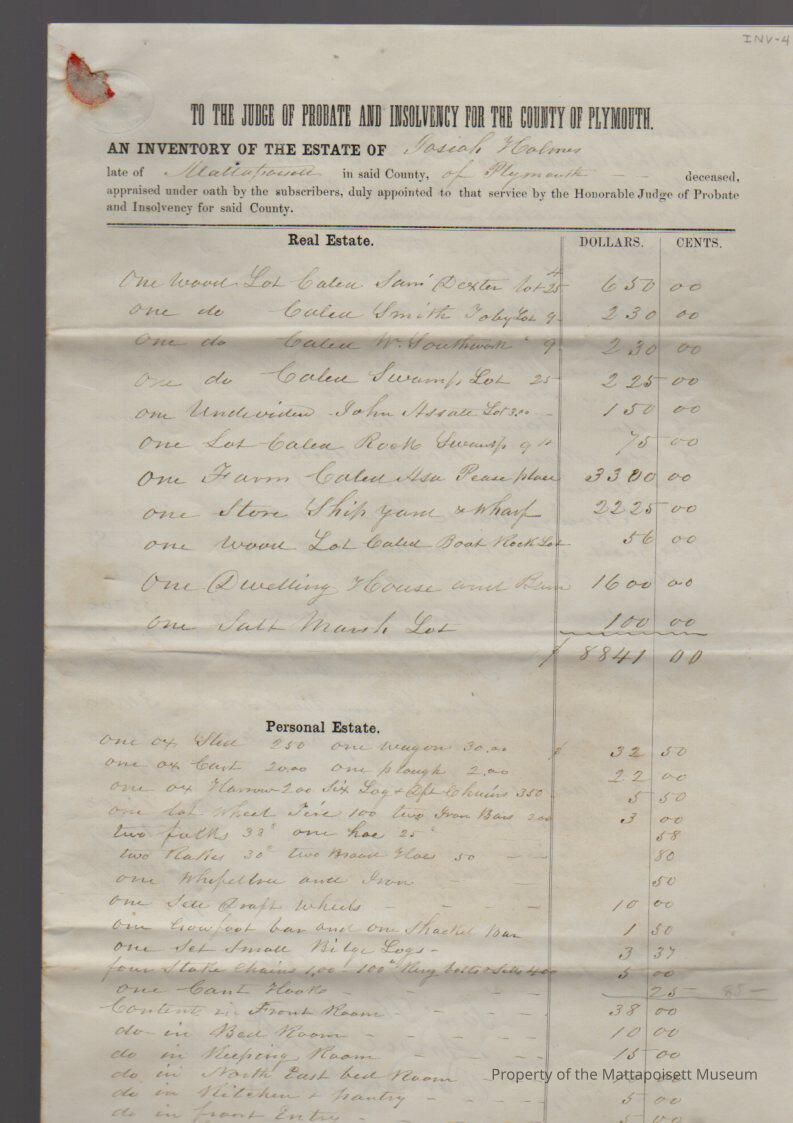 INV-4
TO THE JUDGE OF PROBATE AND INSOLVENCY FOR THE COUNTY OF PLYMOUTH.
AN INVENTORY OF THE ESTATE OF Josiah Holmes
late of Mattapoisett in said County, of Plymouth - - deceased,
appraised under oath by the subscribers, duly appointed to that service by the Honorable Judge of Probate
and Insolvency for said County.
Real Estate. DOLLARS. CENTS.
One Wood Lot Caled Saml Dexter lot 650 00
one do Caled Smith Toby Lot 9 230 00
one do Caled Wm Southworth " 9 230 00
one do Caled Swamp Lot 25 225 00
one Undivided John Lot 150 00
One Lot Caled Rook Swamp 75 00
One Farm Caled Asa Pease place 3300 00
one Store Ship yard & wharf 2225 00
one Wood Lot Caled Boat Rock Lot 56 00
One Dwelling House and Barn 1600 00
One Salt Marsh Lot 100 00
$ 8841 00
Personal Estate.
one ox Sled 250 one wagon 30.00 $ 32 50
one ox Cart 2000 one plough 2.00 22 00
one ox Harrow 200 Six Log & Chains 350 5 50
one lot Wheel Tire 100 two Iron Bars 200 3 00
two forks 33c one hoe 25c 58
two Rakes 30c two Broad Hoes 50 - - 80
one Whipeltree and Iron - - - 50
one Sett Draft Wheels - - - - 10 00
one Crowfoot bar and one Shackel bar 1 50
one Set Small Bilge Logs - 3 37
four Stake Chains 1,00 - 100 Ring bolts & Setts 400 5 00
one Cant Hooks - - - - 25 85 -
Contents in Front Room - - - 38 00
do in Bed Room - - - - 10 00
do in Keeping Room - - - 15 00
do in North East bed Room
do in Kitchen & pantry - - - - - 5 00
do in front Entry - - - - 5 00
Property of the Mattapoisett Museum